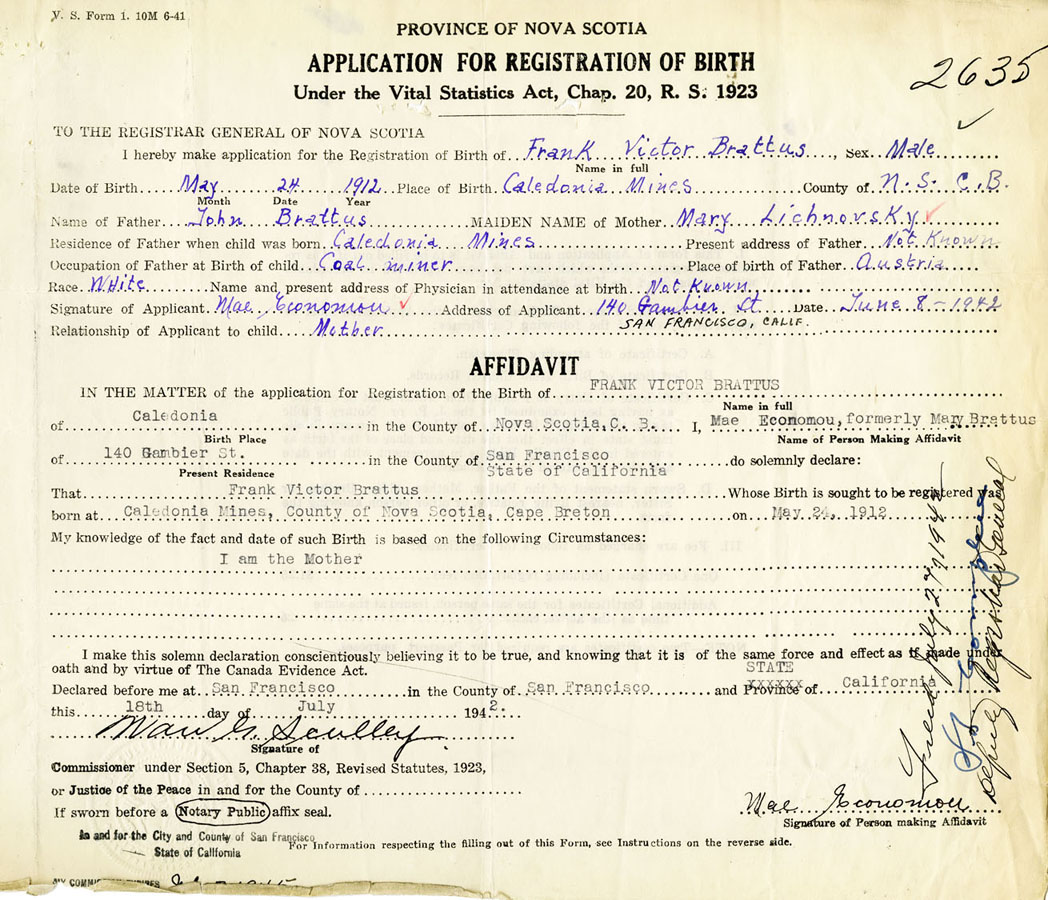 V. S. Form 1. 10M 6-41
PROVINCE OF NOVA SCOTIA
APPLICATION FOR REGISTRATION OF BIRTH
Under the Vital Statistics Act, Chap. 20, R. S. 1923
2635
TO THE REGISTRAR GENERAL OF NOVA SCOTIA
I hereby make application for the Registration of Birth of Frank Victor Brattus, Sex Male
Name in full
Date of Birth May 24 1912 Place of Birth Caledonia Mines County of N.S. C.B.
Month Date Year
Name of Father John Brattus MAIDEN NAME of Mother Mary Lichnovsky
Residence of Father when child was born Caledonia Mines Present address of Father Not Known
Occupation of Father at Birth of child Coal miner Place of birth of Father Austria
Race White Name and present address of Physician in attendance at birth Not Known
Signature of Applicant Mae Economou Address of Applicant 140 Gambier St Date June 8-1942
SAN FRANCISCO, CALIF.
Relationship of Applicant to child Mother
AFFIDAVIT
IN THE MATTER of the application for Registration of the Birth of FRANK VICTOR BRATTUS
Name in full
of Caledonia in the County of Nova Scotia, C. B. I, Mae Economou, formerly Mary Brattus
Birth Place Name of Person Making Affidavit
of 140 Gambier St. in the County of San Francisco do solemnly declare:
State of California
Present Residence
That Frank Victor Brattus Whose Birth is sought to be registered was
born at Caledonia Mines, County of Nova Scotia, Cape Breton on May 24, 1912
My knowledge of the fact and date of such Birth is based on the following Circumstances:
I am the Mother
I make this solemn declaration conscientiously believing it to be true, and knowing that it is of the same force and effect as if made under
oath and by virtue of The Canada Evidence Act.
STATE
Declared before me at San Francisco in the County of San Francisco and Province of California
xxxxxx
this 18th day of July 1942.
Signature of
Commissioner under Section 5, Chapter 38, Revised Statutes, 1923,
or Justice of the Peace in and for the County of
If sworn before a Notary Public affix seal.
Mae Economou
Signature of Person making Affidavit
In and for the City and County of San Francisco
State of California
For Information respecting the filling out of this Form, see Instructions on the reverse side.
Filed July 27/1942
Deputy Registrar General